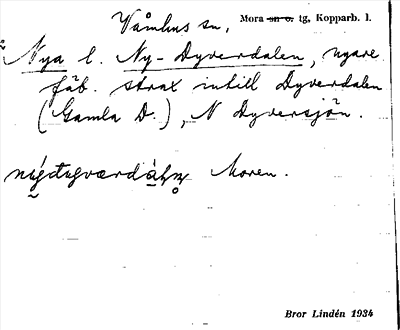 Våmhus sn, Mora sn o. tg, Kopparb. l.
Nya l. Ny-Dyverdalen, nyare
fäb. strax intill Dyverdalen
(Gamla D.), N Dyversjön.
Moren.
Bror Lindén 1934